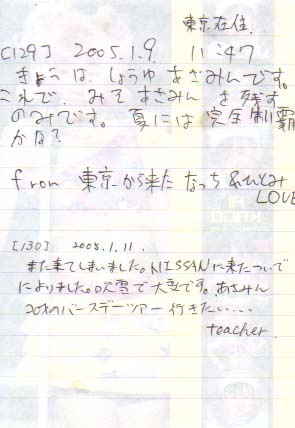 東京在住.
[129] 2005.1.9. 11:47
きょうは、しょうゆあさみんです。
これで、みそあさみんを残す
のみです。夏には完全制覇
かな?
from 東京から来たなっち&ひとみ
LOVE
[130] 2005.1.11.
また来てしまいました。NISSANに来たついで
によりました。吹雪で大変です。あさみん
20才のバースデーツアー行きたい....
teacher.